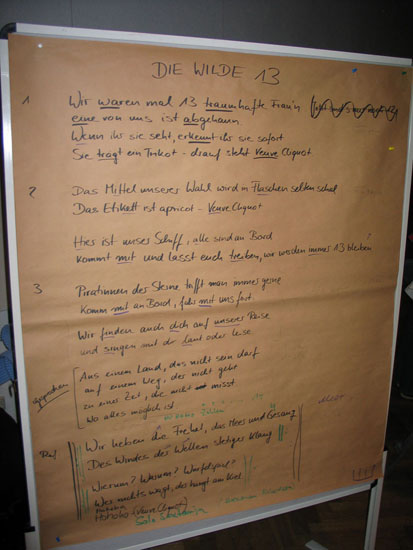 DIE WILDE 13
1 Wir waren mal 13 traumhafte Frau'n
eine von uns ist abgehaun.
Wenn ihr sie seht, erkennt ihr sie sofort
Sie trägt ein Trikot - drauf steht Veuve Cliquot.
2 Das Mittel unserer Wahl wird in Flaschen selten schal
Das Etikett ist apricot - Veuve Cliquot
Hier ist unser Schiff, alle sind an Bord
Kommt mit und lasst euch treiben, wir werden immer 13 bleiben
3 Piratinnen der Sterne trifft man immer gerne
Komm mit an Bord, fahr mit uns fort
Wir finden auch dich auf unserer Reise
und singen mit dir laut oder leise
gesprochen
Aus einem Land, das nicht sein darf
auf einem Weg, den nicht gibt
zu einer Zeit, die nicht misst
Wo alles möglich ist
Ref
Wir lieben die Freiheit, das Meer und Gesang
Des Windes der Wellen stetiger Klang
Warum? Warum?
Wer nichts wagt, der hängt am Kiel
Hohoho (Veuve Cliquot)